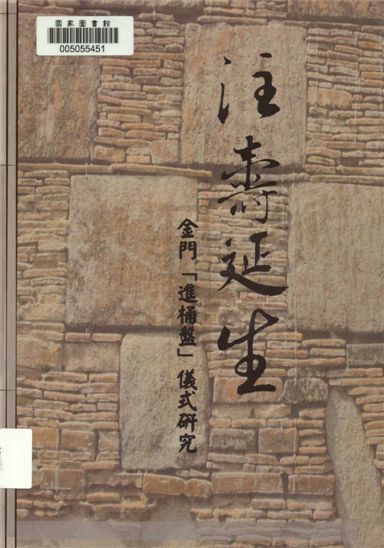 國家圖書館
005055451
注壽延生
金門「進桶盤」儀式研究